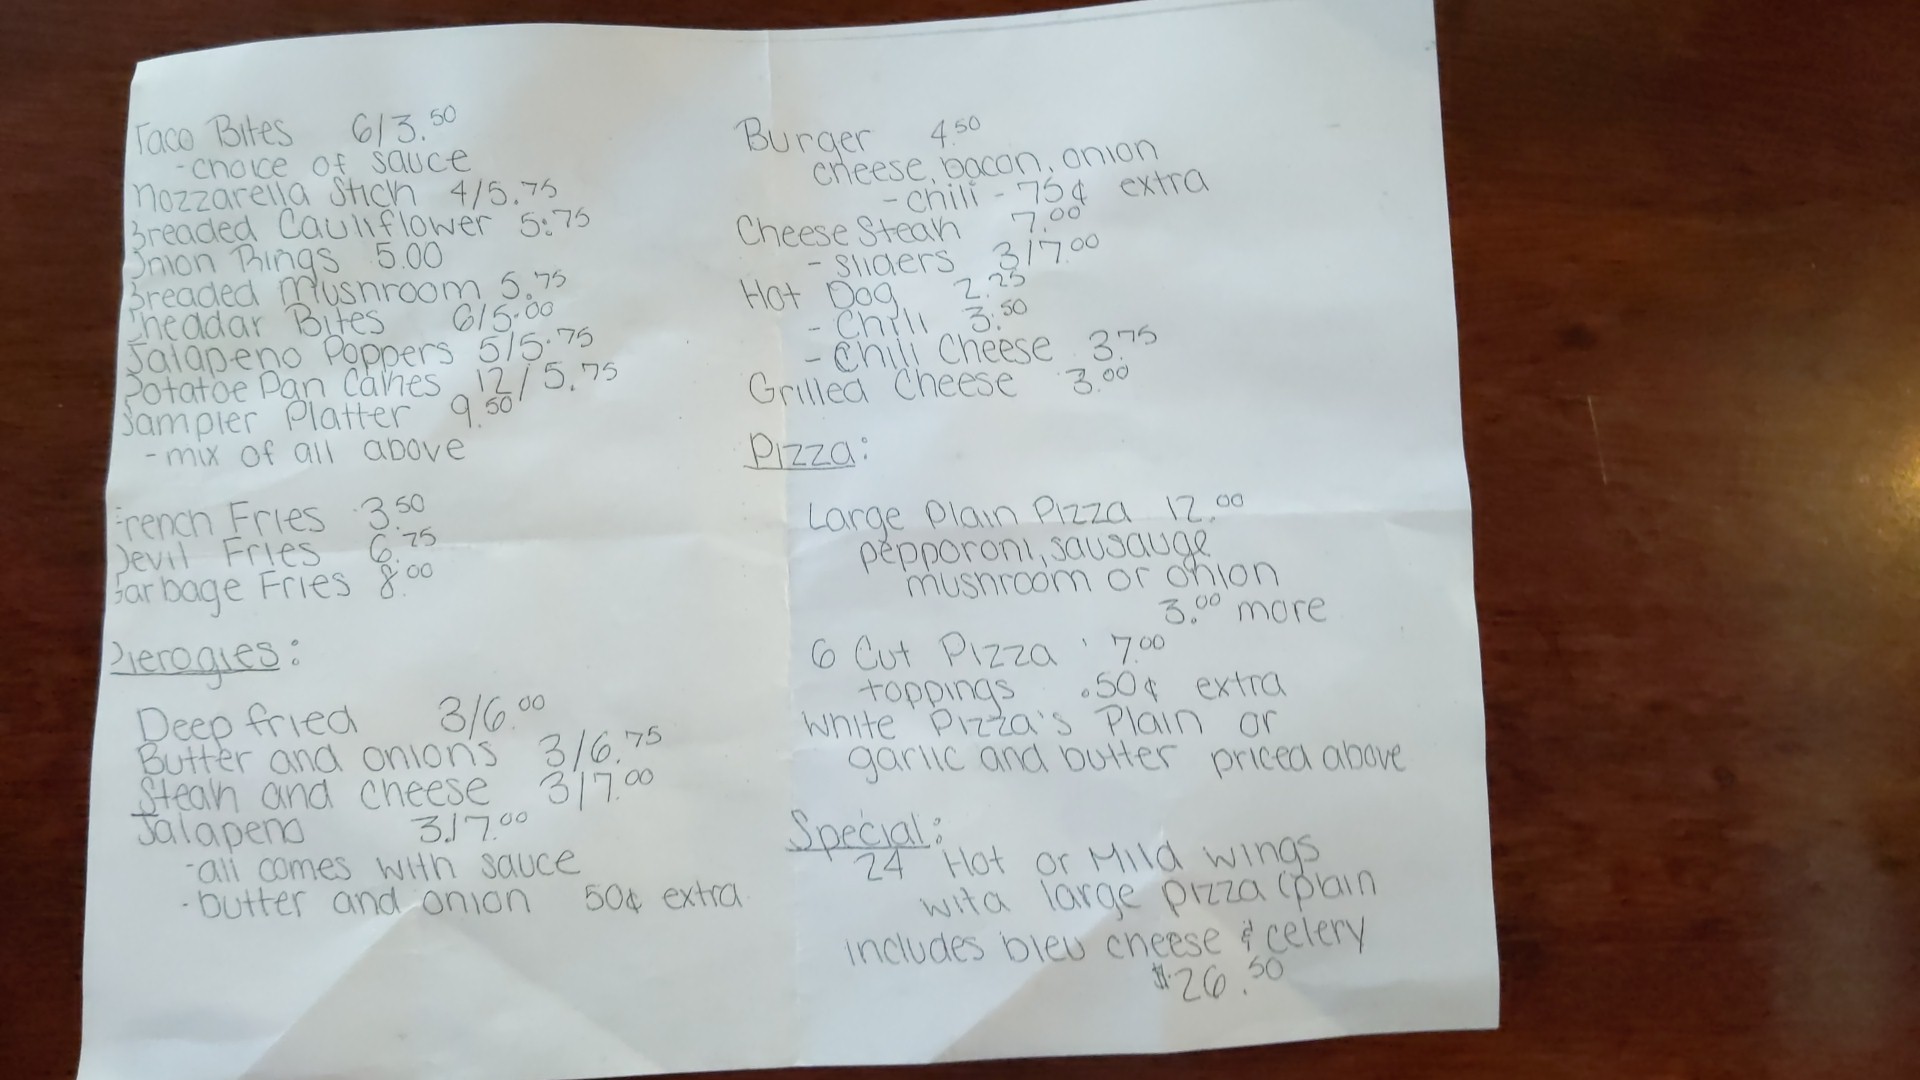 Taco Bites 6/3.50
-choice of sauce
Mozzarella Stick 4/5.75
Breaded Cauliflower 5.75
Onion Rings 5.00
Breaded Mushroom 5.75
Cheddar Bites 6/5.00
Jalapeno Poppers 5/5.75
Potatoe Pan Cakes 12/5.75
Sampler Platter 9.50
-mix of all above
French Fries 3.50
Devil Fries 6.75
Garbage Fries 8.00
Pierogies:
Deep fried 3/6.00
Butter and onions 3/6.75
Steak and cheese 3/7.00
Jalapeno 3/7.00
-all comes with sauce
-butter and onion 50¢ extra
Burger 4.50
cheese, bacon, onion
-chili - 75¢ extra
Cheese Steak 7.00
-sliders 3/7.00
Hot Dog 2.25
-Chili 3.50
-Chili Cheese 3.75
Grilled Cheese 3.00
Pizza:
Large Plain Pizza 12.00
pepporoni, sausauge
mushroom or onion
3.00 more
6 Cut Pizza 7.00
toppings .50¢ extra
White Pizza's Plain or
garlic and butter priced above
Special:
24 Hot or Mild wings
wita large pizza (plain
includes bleu cheese & celery
$26.50